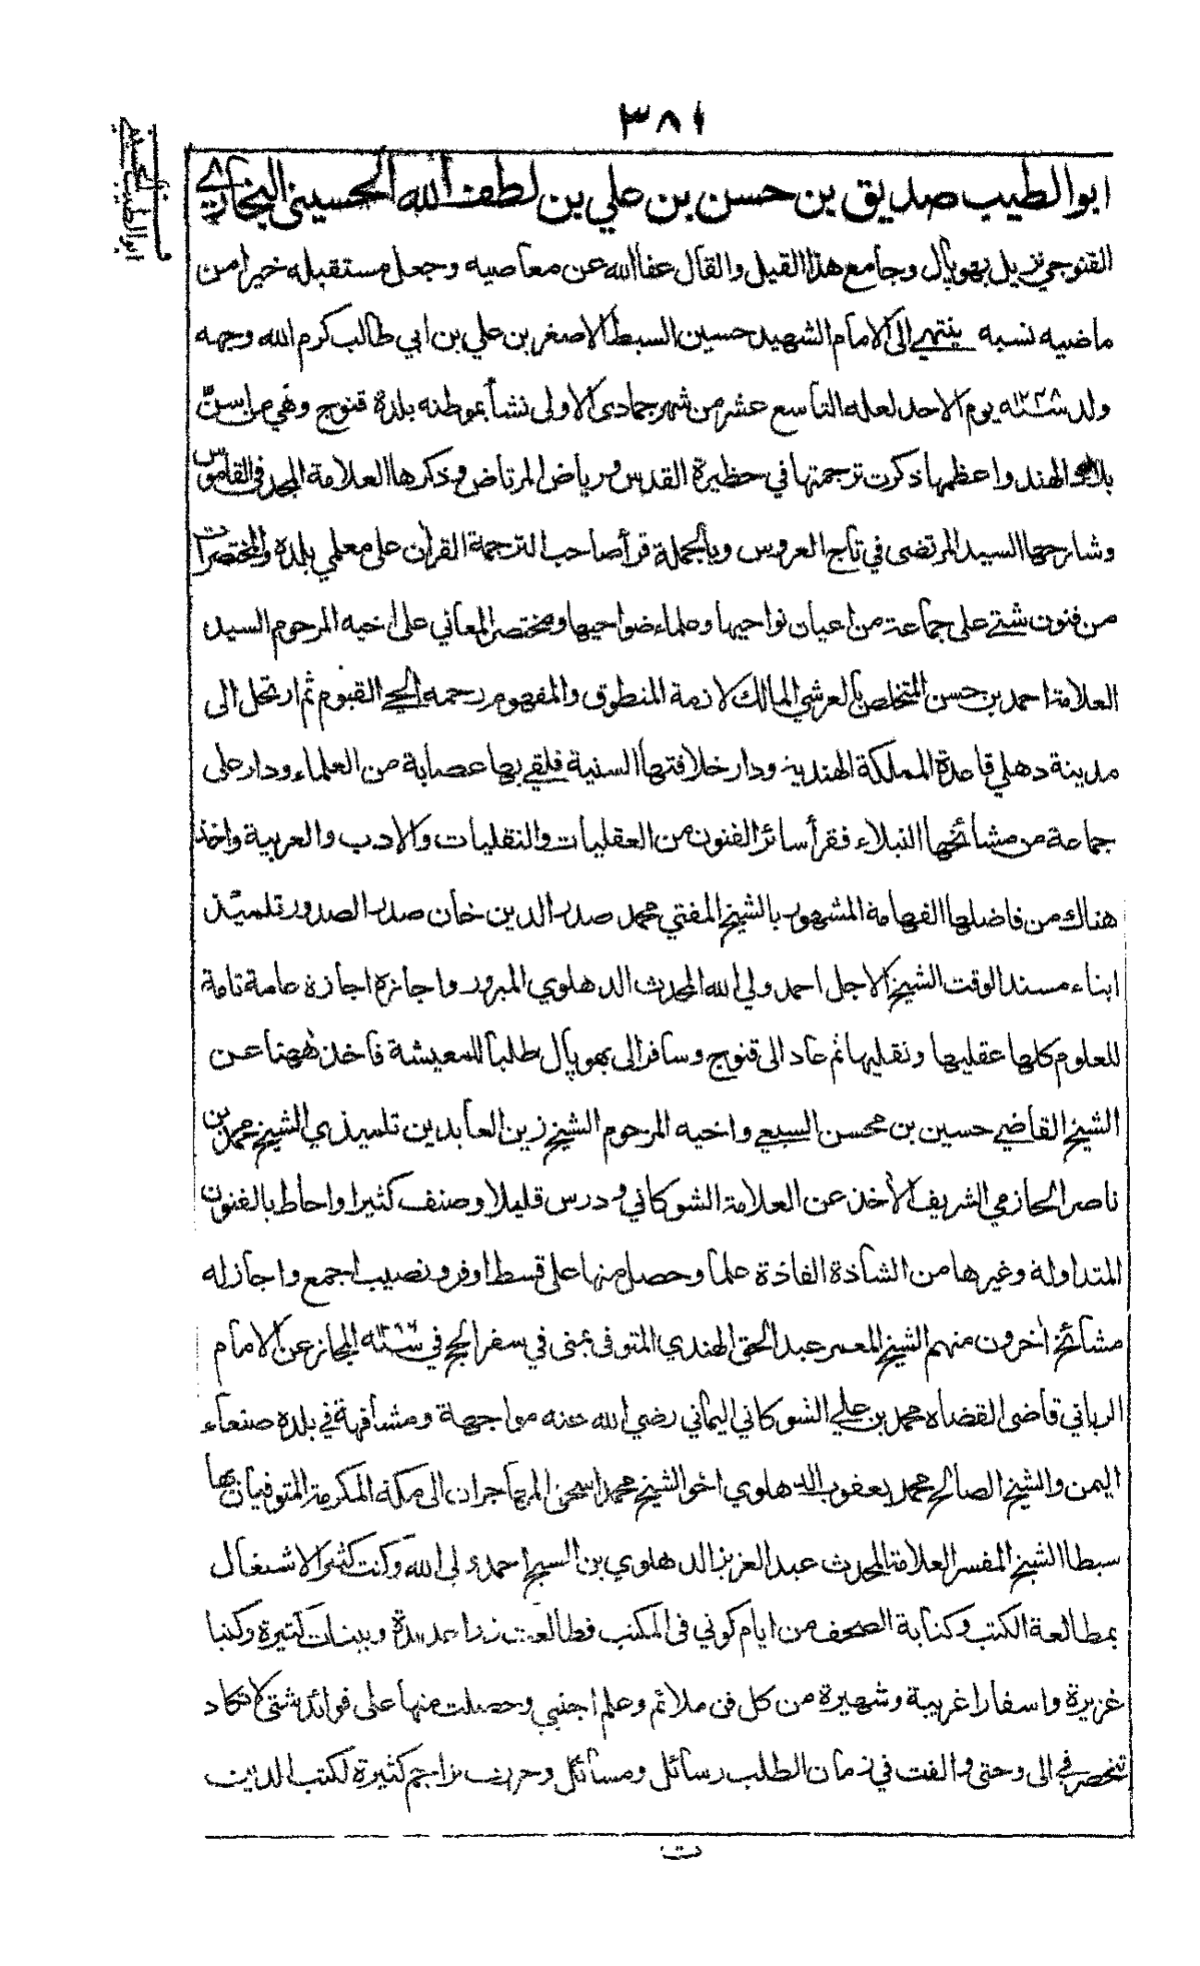 ٣٨١
ابو الطيب الحسيني
ابو الطيب صديق بن حسن بن علي بن لطف الله الحسيني البخاري
القنوجي نزيل بهوپال وجامع هذا القيل والقال عفا الله عن معاصيه وجعل مستقبله خيرا من
ماضيه نسبه ينتهي الى الامام الشهيد حسين السبط الاصغر بن علي بن ابي طالب كرم الله وجهه
ولد سنه ١٢٤٨ يوم الاحد لعله التاسع عشر من شهر جمادى الاولى نشأ بموطنه بلدة قنوج وهي من اسنّ
بلاد الهند واعظمها ذكرت ترجمتها في حظيرة القدس ورياض المرتاض وذكرها العلامة المجد في القاموس
وشارحها السيد المرتضى في تاج العروس وبالجملة قرأ صاحب الترجمة القرآن على معلمي بلده والمختصرات
من فنون شتى على جماعة من اعيان نواحيها وعلماء ضواحيها ومختصر المعاني على اخيه المرحوم السيد
العلامة احمد بن حسن المتخلص بالعرشي المالك لازمة المنطوق والمفهوم رحمه الحي القيوم ثم ارتحل الى
مدينة دهلي قاعدة المملكة الهندية ودار خلافتها السنية فلقي بها عصابة من العلماء ودار على
جماعة من مشائخها النبلاء فقرأ سائر الفنون من العقليات والنقليات والادب والعربية واخذ
هناك من فاضلها الفهامة المشهور بالشيخ المفتي محمد صدر الدين خان صدر الصدور تلميذ
ابناء مسند الوقت الشيخ الاجل احمد ولي الله المحدث الدهلوي المبرور واجازه اجازة عامة تامة
للعلوم كلها عقليها ونقليها ثم عاد الى قنوج وسافر الى بهوپال طلبا للمعيشة فاخذ ههنا عن
الشيخ القاضي حسين بن محسن السبعي واخيه المرحوم الشيخ زين العابدين تلميذي الشيخ محمد بن
ناصر الحازمي الشريف الأخذ عن العلامة الشوكاني ودرس قليلا وصنف كثيرا واحاط بالفنون
المتداولة وغيرها من الشاذة الفاذة علما وحصل منها على قسط اوفر ونصيب اجمع واجاز له
مشائخ أخرون منهم الشيخ المعمر عبد الحق الهندي المتوفى بمنى في سفر الحج في سنه المجاز عن الامام
الرباني قاضي القضاه محمد بن علي الشوكاني اليماني رضي الله عنه مواجهة ومشافهة في بلده صنعاء
اليمن والشيخ الصالح محمد يعقوب الدهلوي اخو الشيخ محمد اسحق المهاجران الى مكة المكرمة المتوفيان بها
سبطا الشيخ المفسر العلامة المحدث عبد العزيز الدهلوي بن الشيخ احمد ولي الله وكنت كثير الاشتغال
بمطالعة الكتب وكتابة الصحف من ايام كوني في المكتب فطالعت زبرا عديدة وبينات كثيرة وكتبا
غزيرة واسفارا غريبة وشهيرة من كل فن ملائم وعلم اجنبي وحصلت منها على فوائد شتى لا تكاد
تنحصر في الى وحتى والفت في زمان الطلب رسائل ومسائل وحررت تراجم كثيرة لكتب الدين